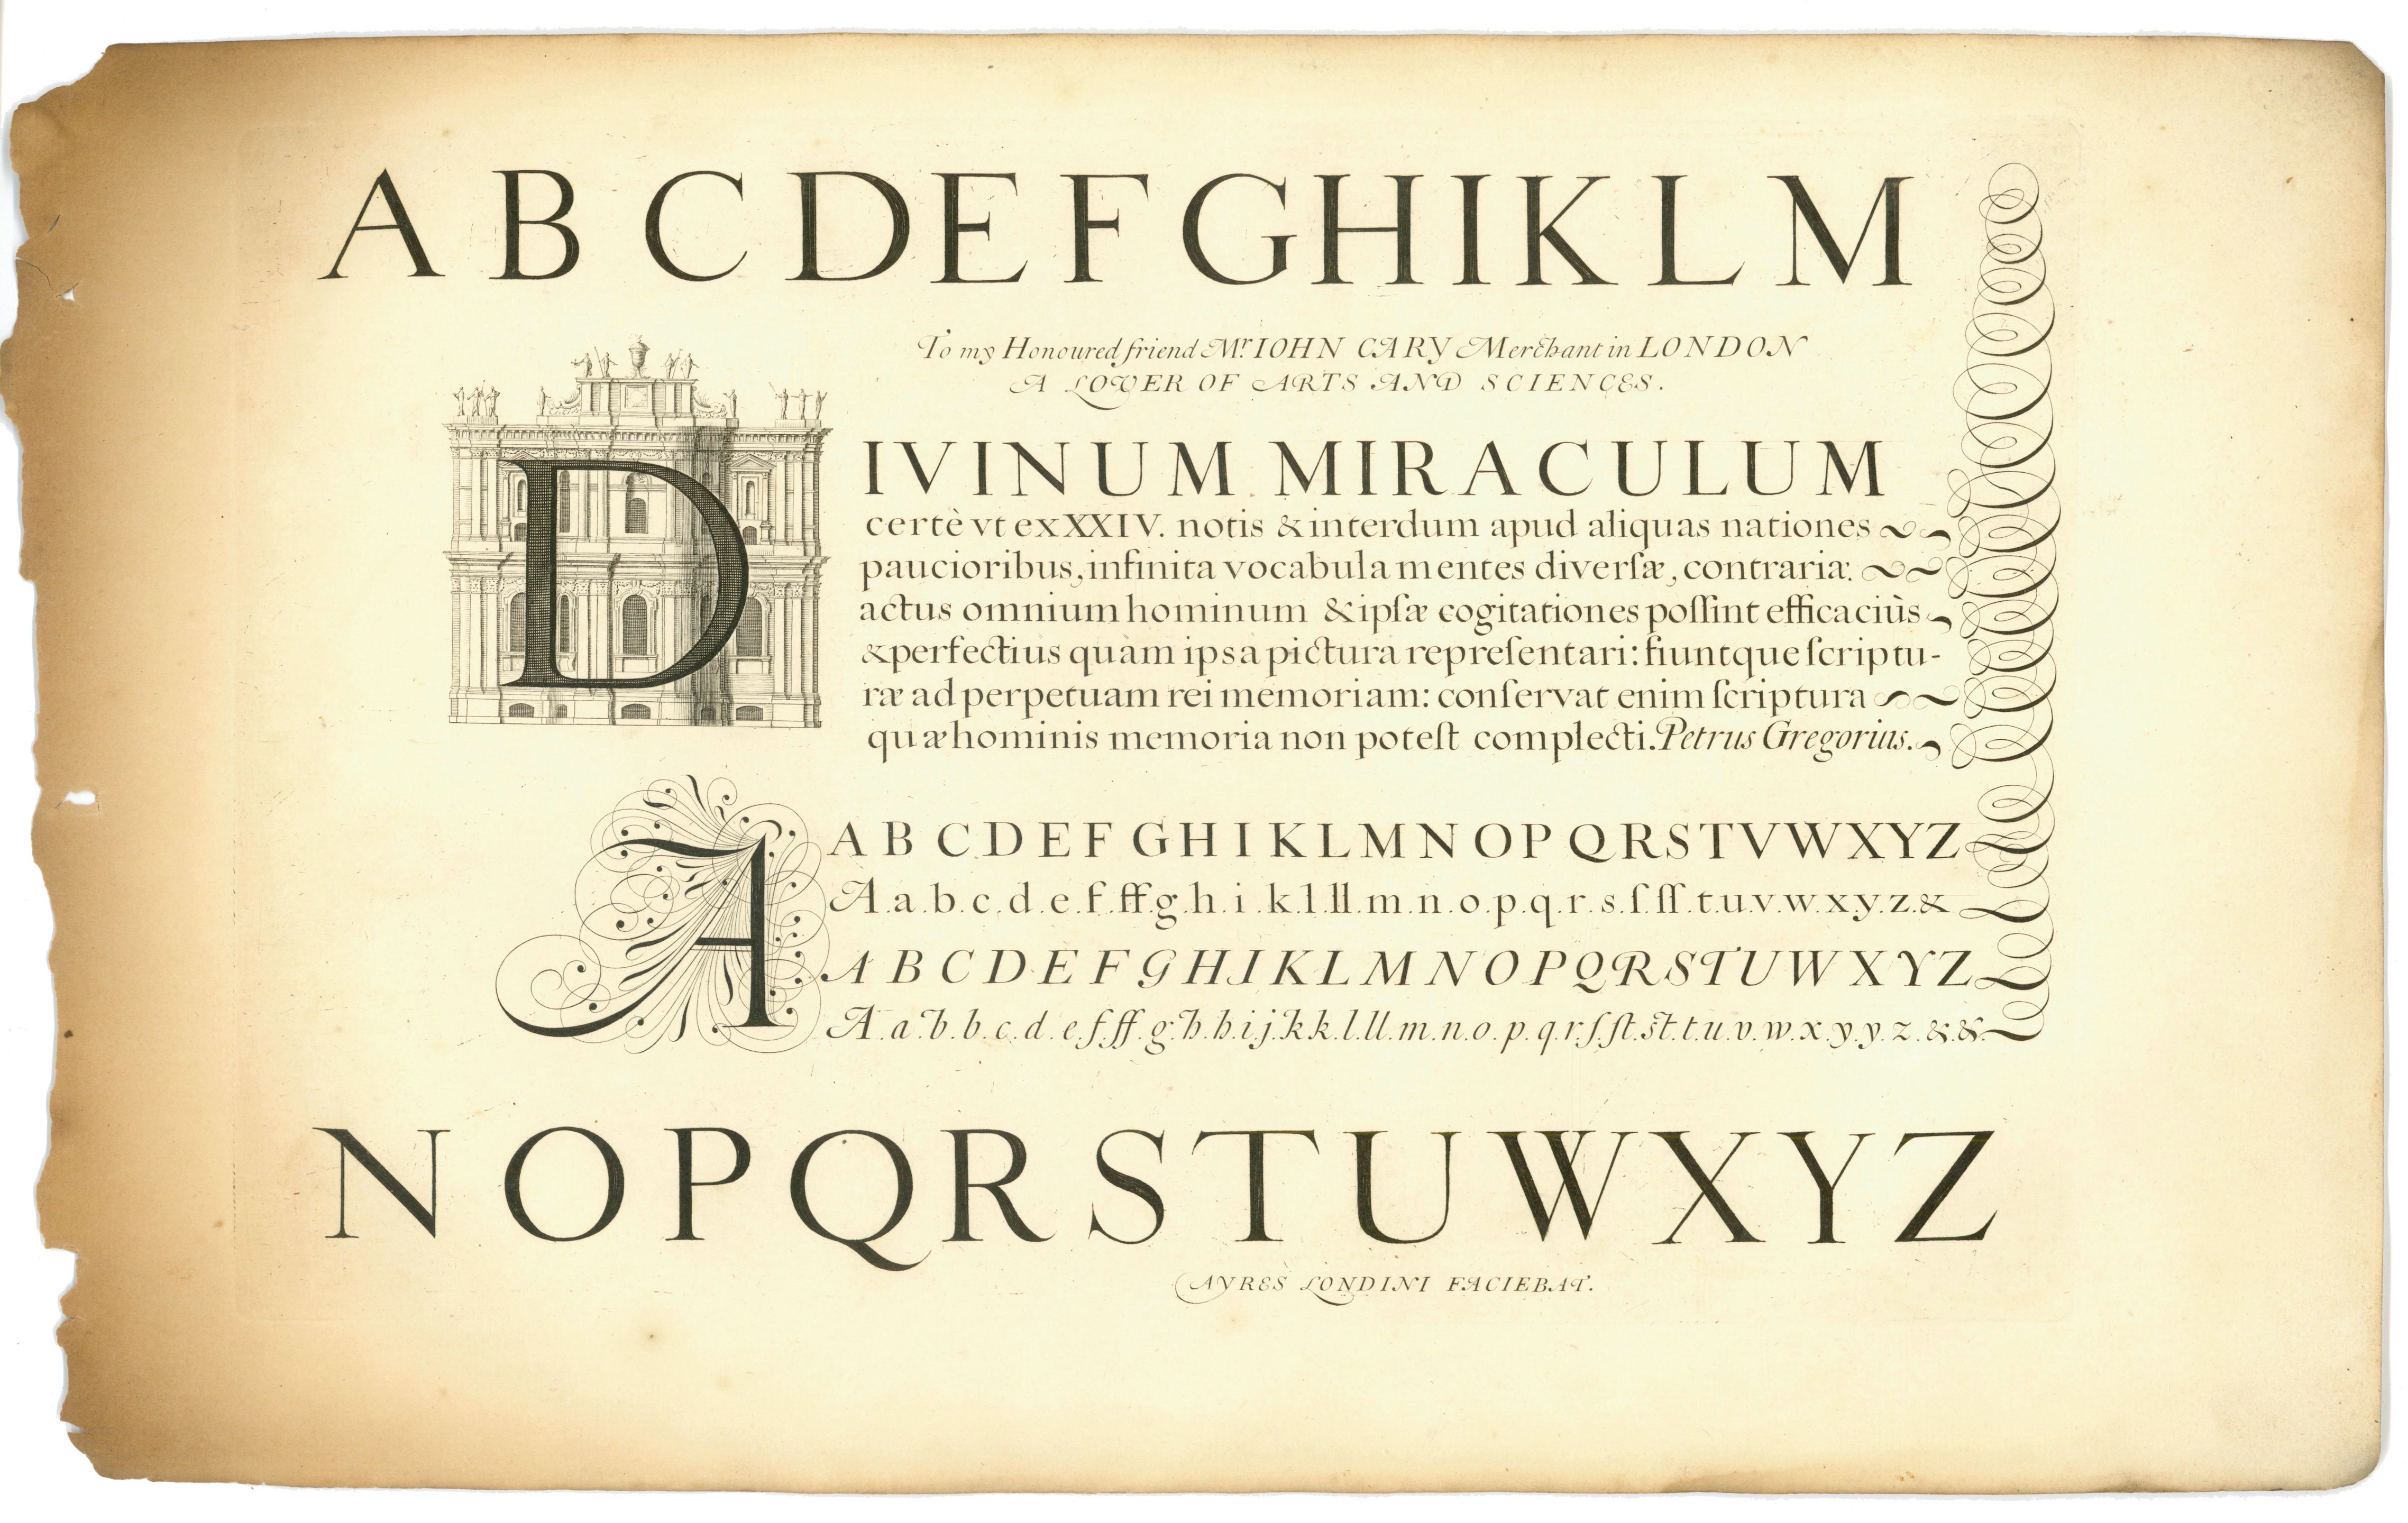 A B C D E F G H I K L M
To my Honoured friend Mr. IOHN CARY Merchant in LONDON
A LOVER OF ARTS AND SCIENCES.
DIVINUM MIRACULUM
certè vt ex XXIV. notis & interdum apud aliquas nationes
paucioribus, infinita vocabula mentes diverſæ, contrariæ
actus omnium hominum & ipſæ cogitationes poſſint efficaciùs
& perfectius quàm ipsa pictura repreſentari: fiuntque ſcriptu-
ræ ad perpetuam rei memoriam: conſervat enim ſcriptura
quæ hominis memoria non poteſt complecti. Petrus Gregorius.
A
A B C D E F G H I K L M N O P Q R S T V W X Y Z
A.a.b.c.d.e.f.ff.g.h.i.k.l.ll.m.n.o.p.q.r.s.ſ.ſſ.t.u.v.w.x.y.z.&
A B C D E F G H I K L M N O P Q R S T U W X Y Z
A.a.b.b.c.d.e.f.ff.g.h.h.i.j.k.k.l.ll.m.n.o.p.q.r.ſ.ſt.st.t.u.v.w.x.y.y.z.&.&.
N O P Q R S T U W X Y Z
AYRES LONDINI FACIEBAT.